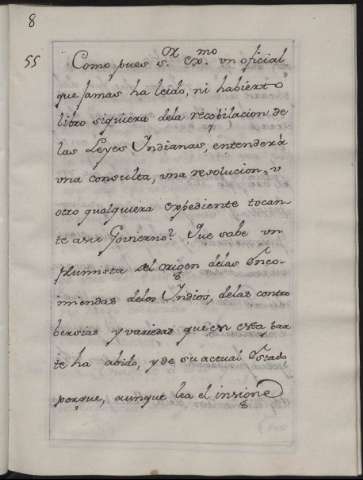 8
55
Como pues s.or ex.mo vn oficial
que jamas ha leido, ni habierto
libro siquiera dela recobilacion de
las Leyes Yndianas, entenderà
vna consulta, vna resolucion, v
otro qualquiera expediente tocan-
te asu Govierno? Que sabe vn
plumista del origen delas Enco-
miendas delos Yndios, delas contro
bersias y variedad que en esta par
te ha abido, y de su actual Estado
porque, aunque lea el insigne